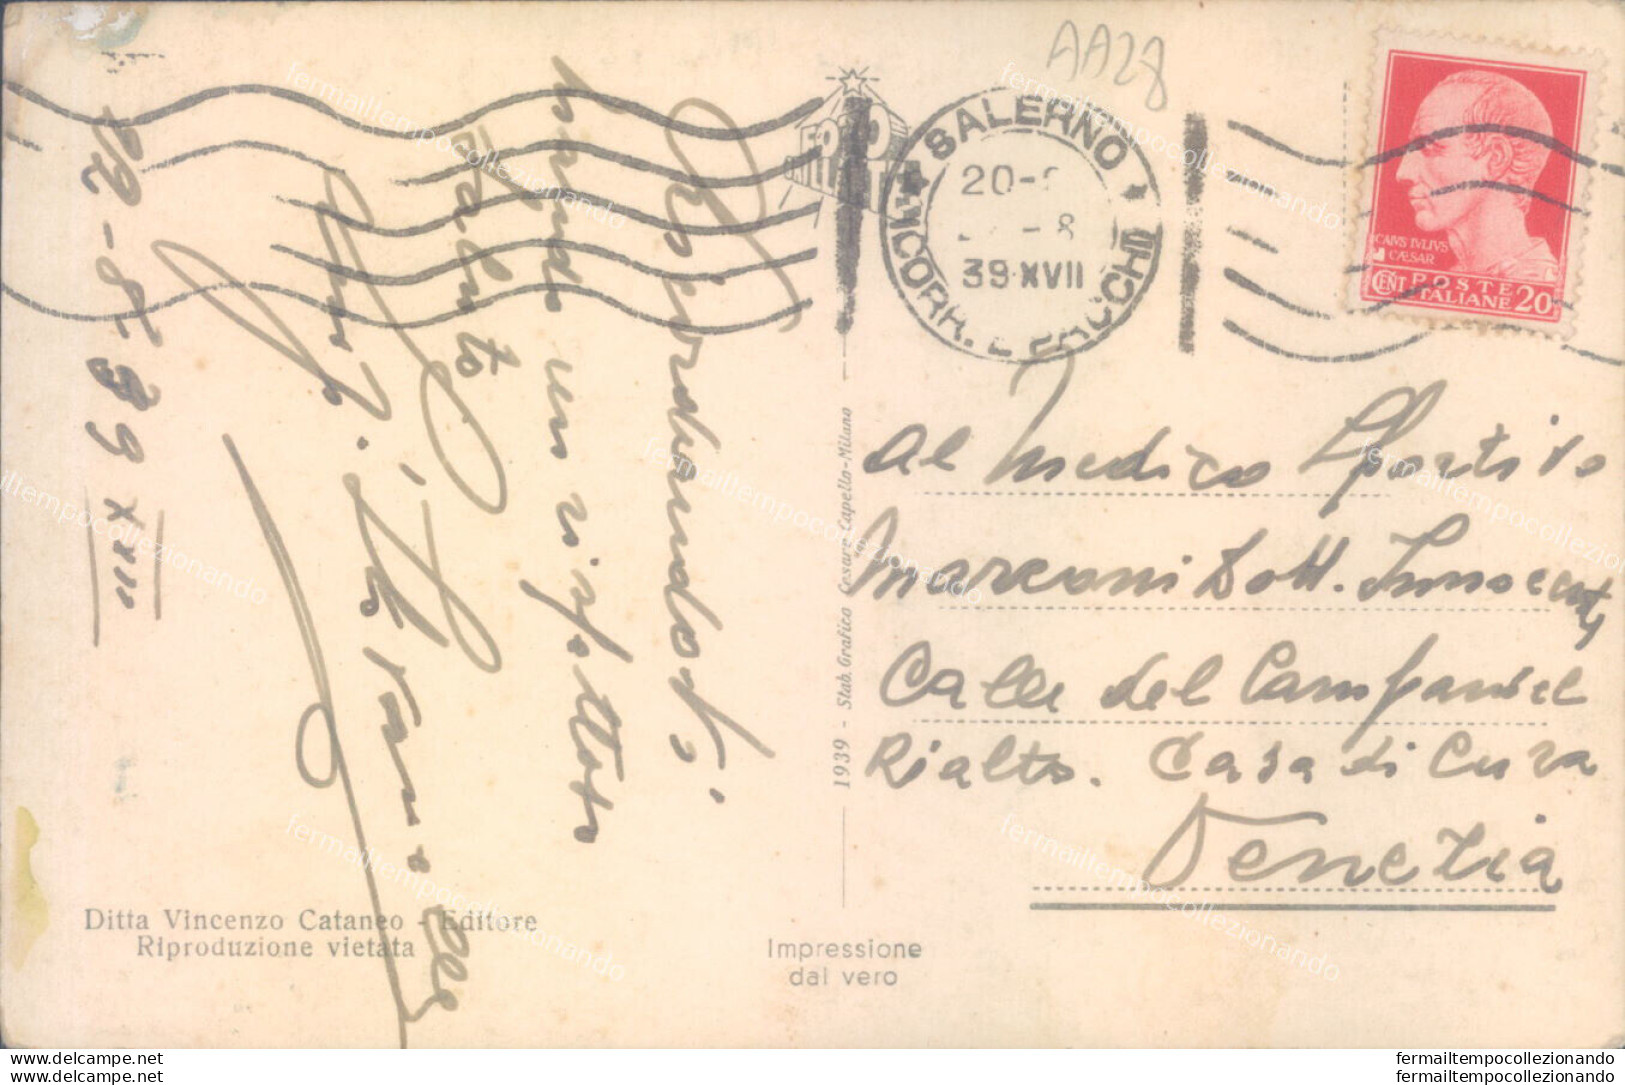 AA28
SALERNO
20-
8
39·XVII
CORR. E PACCHI
CAIVS IVLIVS
CÆSAR
CENT POSTE 20
ITALIANE
FOTO
22-8-39 XVII
Ricordandoti
un rispettoso
saluto
Al Medico Sportivo
Marconi Dott. Innocente
Calle del Campaniel
Rialto. Casa di Cura
Venezia
1939 - Stab. Grafico Cesare Capello-Milano
Ditta Vincenzo Cataneo - Editore
Riproduzione vietata
Impressione
dal vero
fermailtempocollezionando
www.delcampe.net
www.delcampe.net
fermailtempocollezionando
fermailtempocollezionando